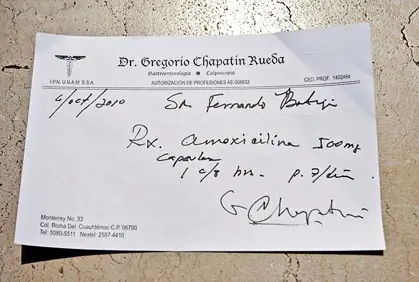 Dr. Gregorio Chapatín Rueda
Gastroenterología • Coloscopía
I.P.N. U.N.A.M. S.S.A.
AUTORIZACIÓN DE PROFESIONES AE-008602
CED. PROF. 1402464
6/oct/2010
Sr. Fernando
Rx. amoxicilina 500mg
Capsulas
1 c/8 hrs. p. 7/días
G Chapatín
Monterrey No. 33
Col. Roma Del. Cuauhtémoc CP. 06700
Tel: 5080-5511 Nextel: 2587-4410